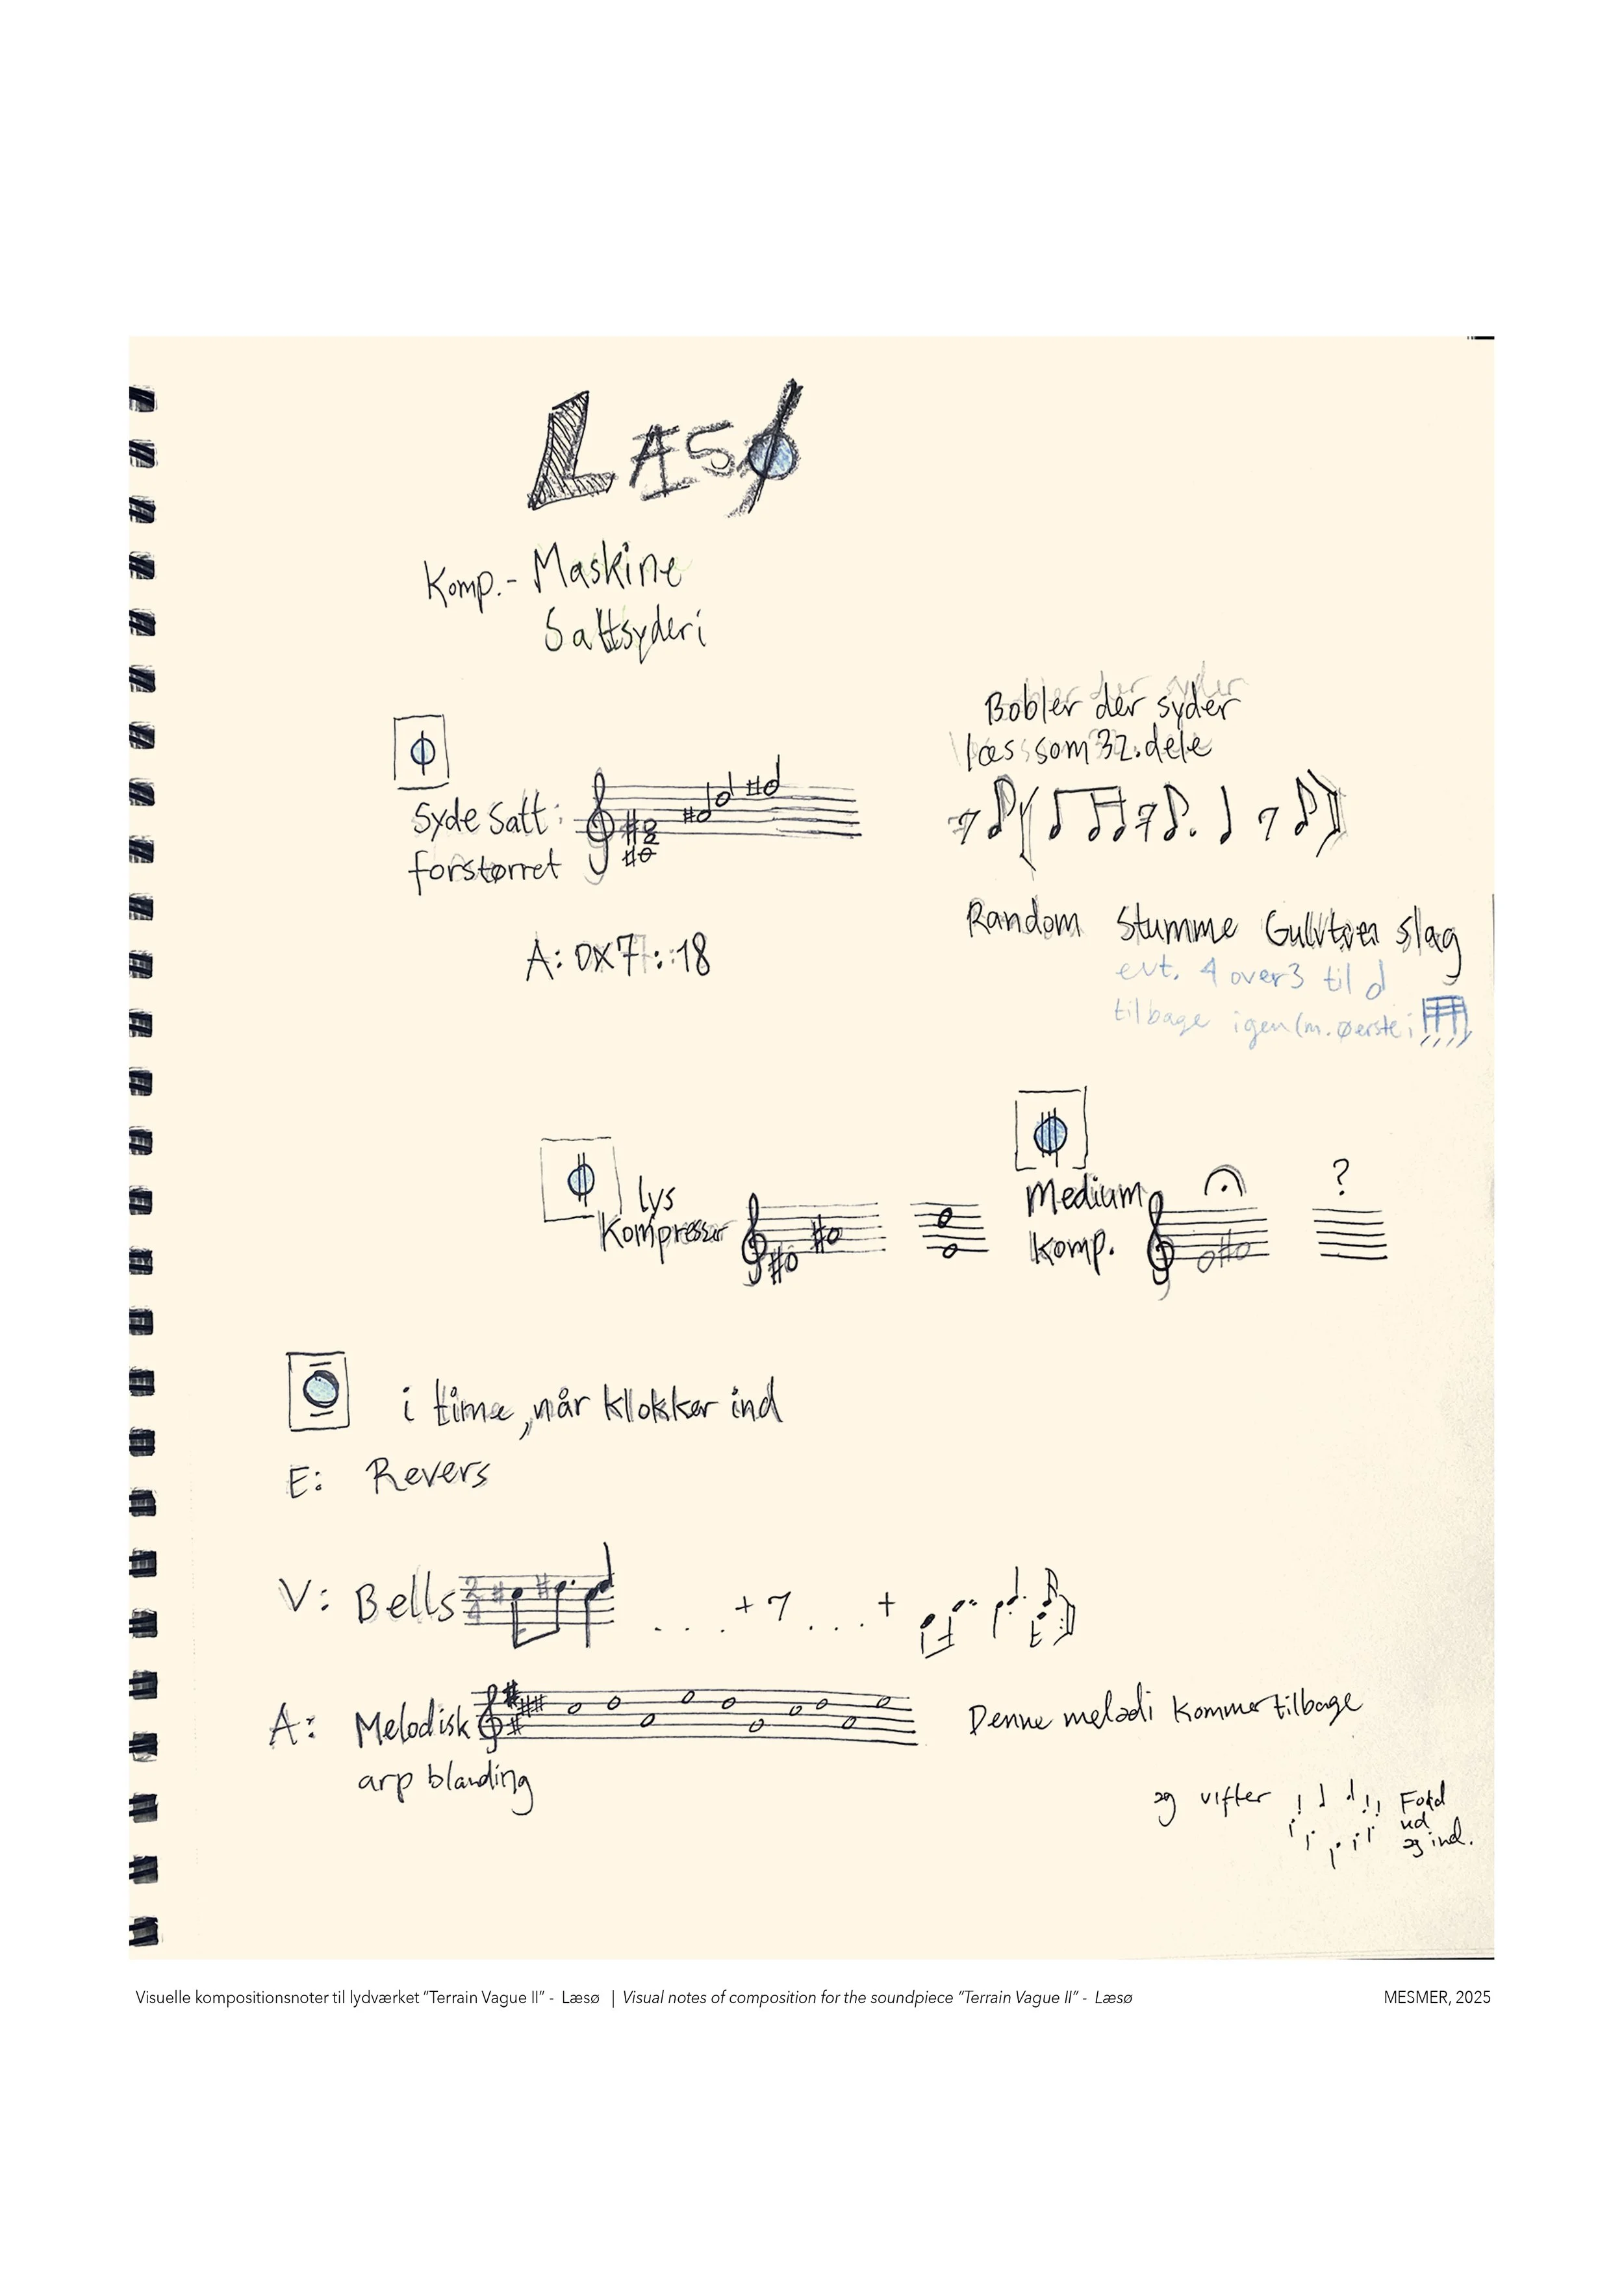 LÆSØ
Komp.- Maskine
Saltsyderi
Bobler der syder
læs som 32.dele
Syde Salt:
forstørret
A: 0x7::18
Random Stumme Gulvtom slag
evt. 4 over 3 til
tilbage igen (m.
lys
Kompressor
Medium
Komp.
?
i time, når klokker ind
E: Revers
V: Bells 2/4 . . . + 7 . . . +
A: Melodisk
arp blanding
Denne melodi kommer tilbage
og vifter
Fold
ud
og ind.
Visuelle kompositionsnoter til lydværket "Terrain Vague II" - Læsø | Visual notes of composition for the soundpiece "Terrain Vague II" - Læsø
MESMER, 2025